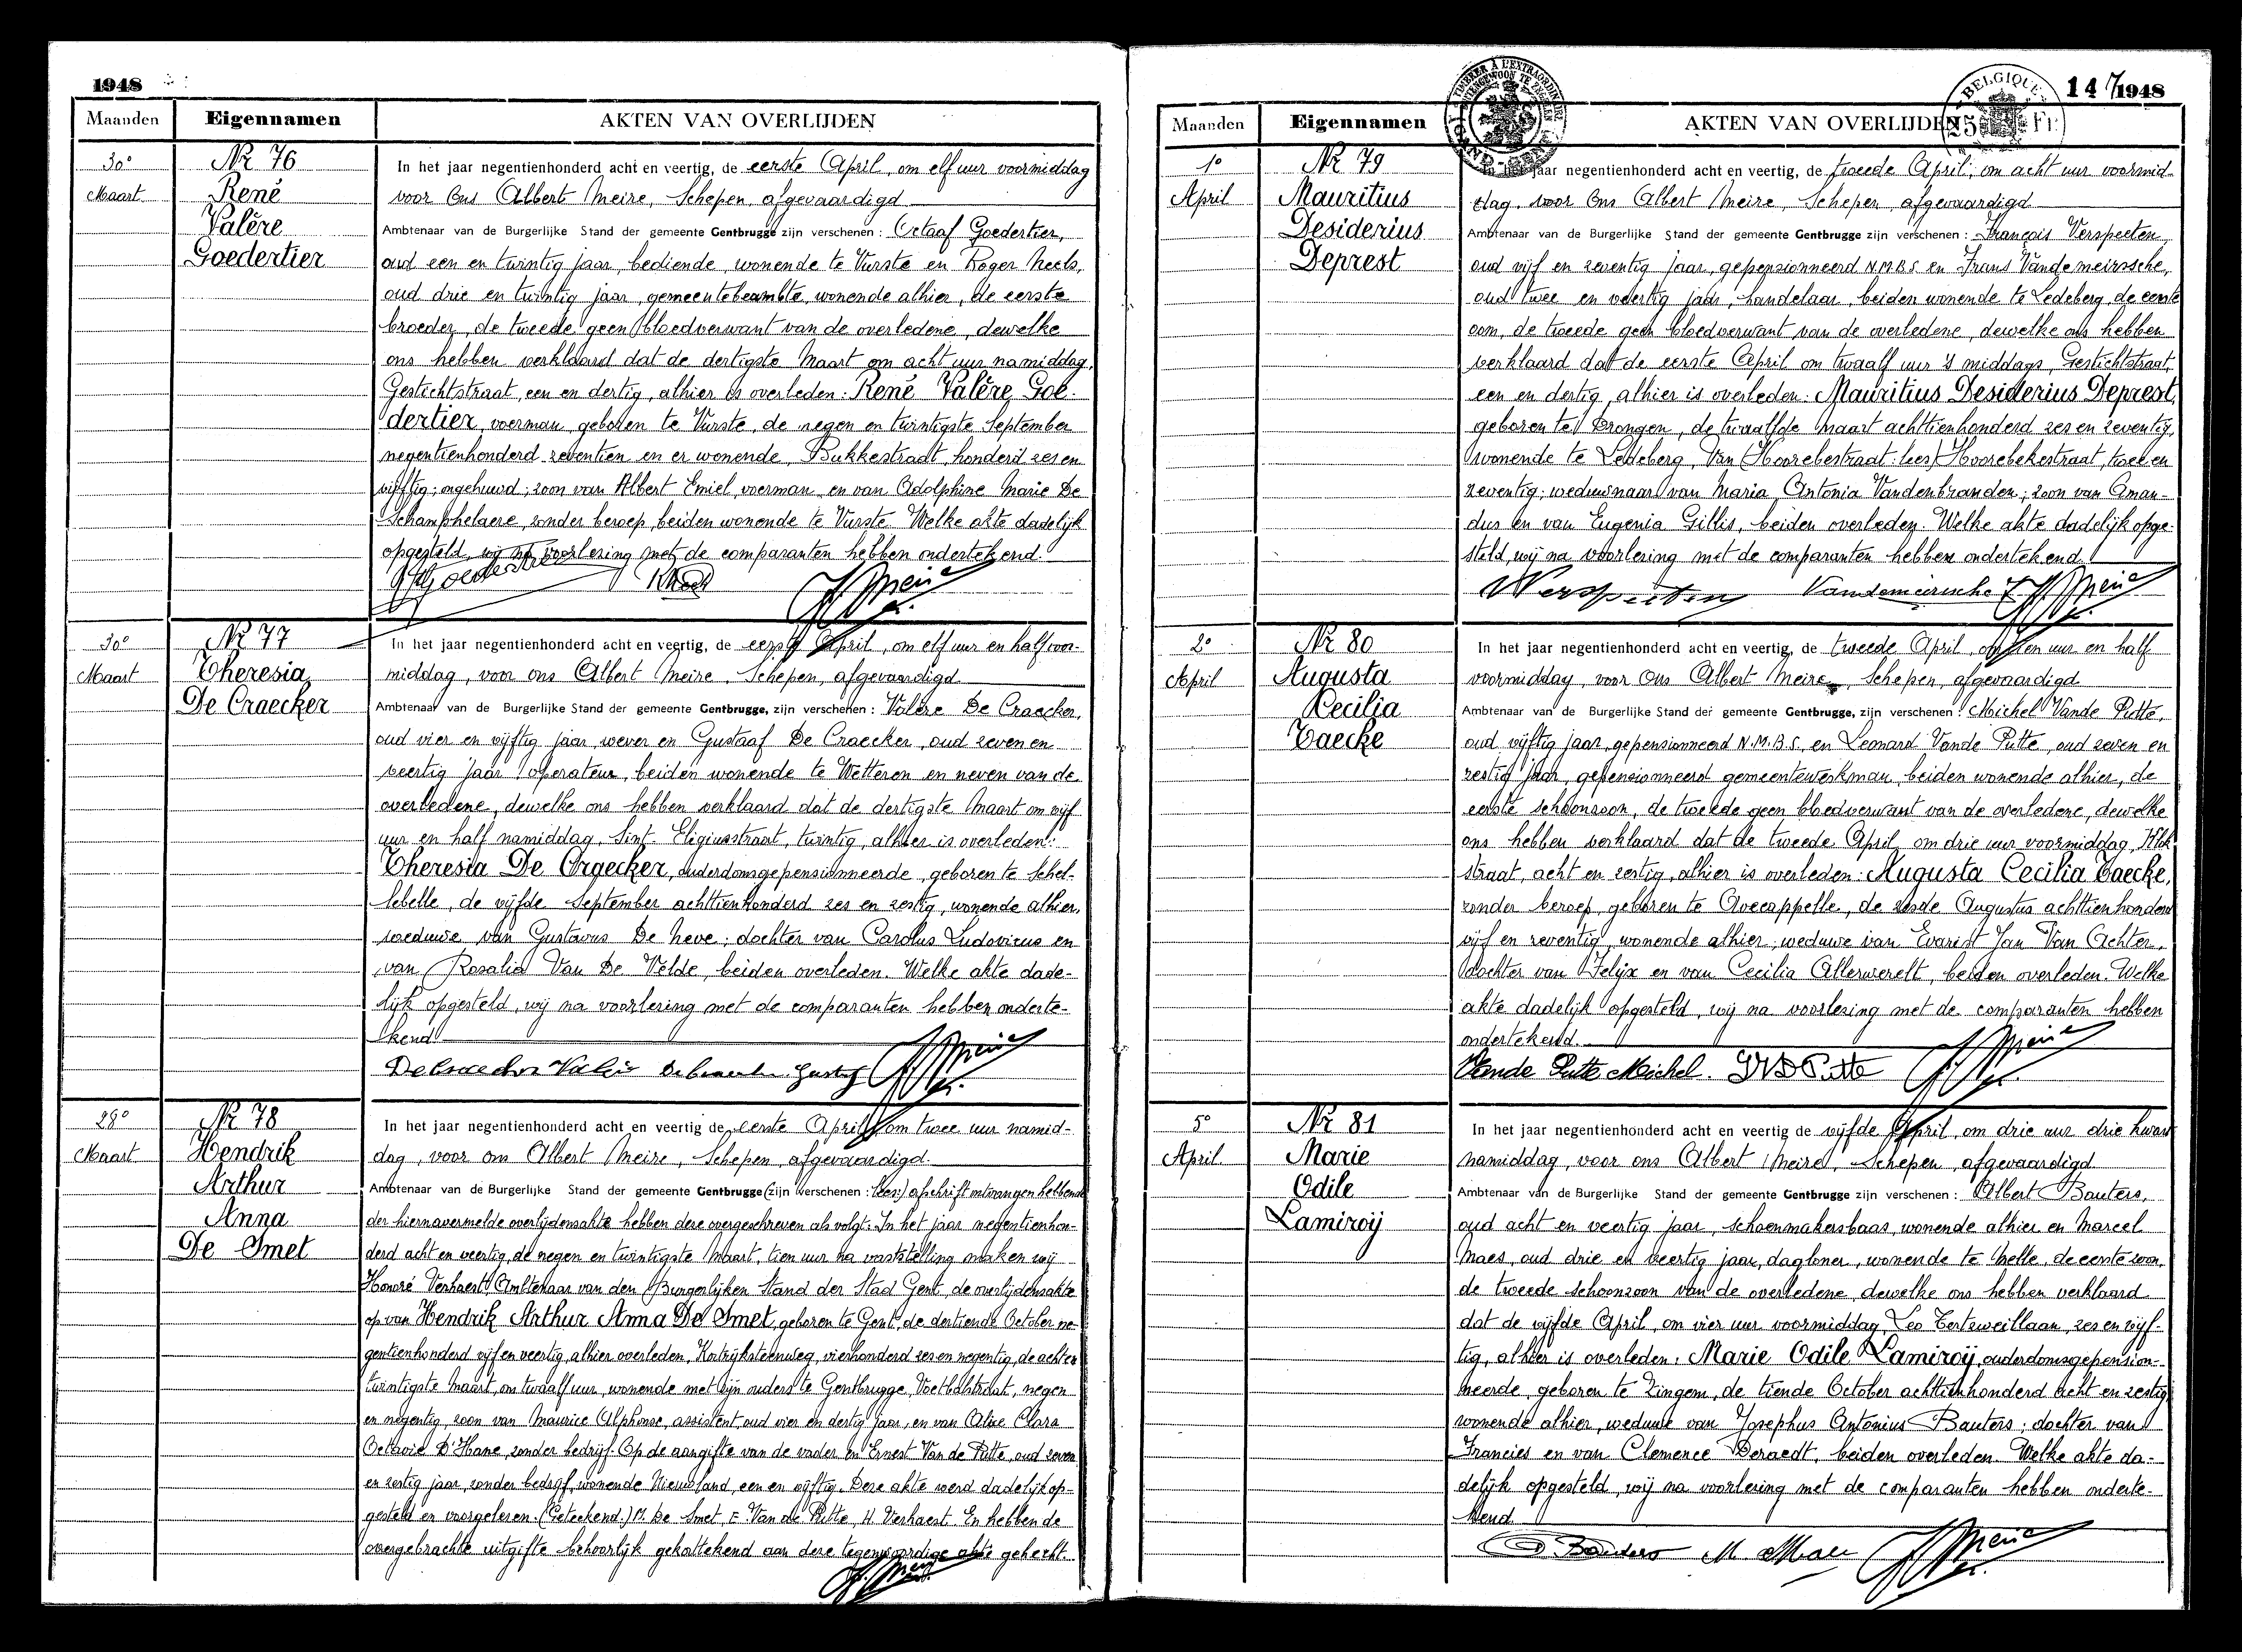 1948
Maanden
Eigennamen
AKTEN VAN OVERLIJDEN
30e
Maart
Nr 76
René
Valère
Goedertier
In het jaar negentienhonderd acht en veertig, de eerste April, om elf uur voormiddag
voor Ons Albert Meire, Schepen, afgevaardigd
Ambtenaar van de Burgerlijke Stand der gemeente Gentbrugge zijn verschenen : Octaaf Goedertier,
oud een en twintig jaar, bediende, wonende te Vurste en Roger Neels,
oud drie en twintig jaar, gemeentebeambte, wonende alhier, de eerste
broeder, de tweede geen bloedverwant van de overledene, dewelke
ons hebben verklaard dat de dertigste Maart om acht uur namiddag,
Gestichtstraat, een en dertig, alhier is overleden: René Valère Goe-
dertier, voerman, geboren te Vurste, de negen en twintigste September
negentienhonderd zeventien en er wonende, Bukkestraat, honderd zes en
vijftig; ongehuwd; zoon van Albert Emiel, voerman, en van Adolphine Marie De
Schamphelaere, zonder beroep, beiden wonende te Vurste. Welke akte dadelijk
opgesteld, wij na voorlezing met de comparanten hebben ondertekend.
30e
Maart
Nr 77
Theresia
De Craecker
In het jaar negentienhonderd acht en veertig, de eerste April, om elf uur en half voor-
middag, voor ons Albert Meire, Schepen, afgevaardigd
Ambtenaar van de Burgerlijke Stand der gemeente Gentbrugge, zijn verschenen : Valère De Craecker,
oud vier en vijftig jaar, wever en Gustaaf De Craecker, oud zeven en
veertig jaar, operateur, beiden wonende te Wetteren en neven van de
overledene, dewelke ons hebben verklaard dat de dertigste Maart om vijf
uur en half namiddag, Sint. Eligiusstraat, twintig, alhier is overleden:
Theresia De Craecker, ouderdomsgepensionneerde, geboren te Schel-
lebelle, de vijfde September achttienhonderd zes en zestig, wonende alhier,
weduwe van Gustavus De Neve; dochter van Carolus Ludovicus en
van Rosalia Van De Velde, beiden overleden. Welke akte dade-
lijk opgesteld, wij na voorlezing met de comparanten hebben onderte-
kend.
De Craecker Valère De Craecker Gustaaf
28e
Maart
Nr 78
Hendrik
Arthur
Anna
De Smet
In het jaar negentienhonderd acht en veertig de eerste April, om twee uur namid-
dag, voor ons Albert Meire, Schepen, afgevaardigd
Ambtenaar van de Burgerlijke Stand der gemeente Gentbrugge (zijn verschenen : lees:) afschrift ontvangen hebbende
der hiernavermelde overlijdensakte hebben deze overgeschreven als volgt: In het jaar negentienhon-
derd acht en veertig, de negen en twintigste Maart, tien uur na vaststelling maken wij
Honoré Verhaert, Ambtenaar van den Burgerlijken Stand der Stad Gent, de overlijdensakte
op van Hendrik Arthur Anna De Smet, geboren te Gent, de dertiende October ne-
gentienhonderd vijf en veertig, alhier overleden, Kortrijksteenweg, vierhonderd zes en negentig, de acht en
twintigste Maart, om twaalf uur, wonende met zijn ouders te Gentbrugge, Voetbalstraat, negen
en negentig, zoon van Maurice Alphonse, assistent, oud vier en dertig jaar, en van Alice Clara
Octavie D'Hane, zonder bedrijf. Op de aangifte van de vader en Ernest Van de Putte, oud zeven
en zestig jaar, zonder bedrijf, wonende Nieuwland, een en vijftig. Deze akte werd dadelijk op-
gesteld en voorgelezen. (Geteekend.) M. De Smet, E. Van de Putte, H. Verhaert. En hebben de
overgebrachte uitgifte behoorlijk gekottekend aan deze tegenwoordige akte gehecht.
147
1948
BELGIQUE
25 Fr.
Maanden
Eigennamen
AKTEN VAN OVERLIJDEN
1e
April
Nr 79
Mauritius
Desiderius
Deprest
In het jaar negentienhonderd acht en veertig, de tweede April, om acht uur voormid-
dag, voor Ons Albert Meire, Schepen, afgevaardigd
Ambtenaar van de Burgerlijke Stand der gemeente Gentbrugge zijn verschenen : François Verspeeten,
oud vijf en zeventig jaar, gepensionneerd N.M.B.S. en Frans Vandemeirssche,
oud twee en veertig jaar, handelaar, beiden wonende te Ledeberg, de eerste
oom, de tweede geen bloedverwant van de overledene, dewelke ons hebben
verklaard dat de eerste April om twaalf uur 's middags, Gestichtstraat,
een en dertig, alhier is overleden: Mauritius Desiderius Deprest,
geboren te Drongen, de twaalfde Maart achttienhonderd zes en zeventig,
wonende te Ledeberg, Van (Hoorebestraat: lees) Hoorebekestraat, twee en
zeventig; weduwnaar van Maria Antonia Vandenbranden; zoon van Aman-
dus en van Eugenia Gillis, beiden overleden. Welke akte dadelijk opge-
steld, wij na voorlezing met de comparanten hebben ondertekend.
Verspeeten Vandemeirssche F
2e
April
Nr 80
Augusta
Cecilia
Taecke
In het jaar negentienhonderd acht en veertig, de tweede April, om tien uur en half
voormiddag, voor Ons Albert Meire, Schepen, afgevaardigd
Ambtenaar van de Burgerlijke Stand der gemeente Gentbrugge, zijn verschenen : Michel Vande Putte,
oud vijftig jaar, gepensionneerd N.M.B.S. en Leonard Vande Putte, oud zeven en
zestig jaar, gepensionneerd gemeentewerkman, beiden wonende alhier, de
eerste schoonzoon, de tweede geen bloedverwant van de overledene, dewelke
ons hebben verklaard dat de tweede April, om drie uur voormiddag,
straat, acht en zestig, alhier is overleden: Augusta Cecilia Taecke,
zonder beroep, geboren te Avecappelle, de zesde Augustus achttienhonderd
vijf en zeventig, wonende alhier; weduwe van Evarist Jan Van Achter,
dochter van Felix en van Cecilia Allerwerelt, beiden overleden. Welke
akte dadelijk opgesteld, wij na voorlezing met de comparanten hebben
ondertekend.
Vande Putte Michel. VD Putte
5e
April
Nr 81
Marie
Odile
Lamiroij
In het jaar negentienhonderd acht en veertig de vijfde April, om drie uur drie kwart
namiddag, voor ons Albert Meire, Schepen, afgevaardigd
Ambtenaar van de Burgerlijke Stand der gemeente Gentbrugge zijn verschenen : Albert Bauters,
oud acht en veertig jaar, schoenmakersbaas, wonende alhier en Marcel
Maes, oud drie en veertig jaar, dagloner, wonende te Melle, de eerste zoon,
de tweede schoonzoon van de overledene, dewelke ons hebben verklaard
dat de vijfde April, om vier uur voormiddag, Leo Tertzweillaan, zes en vijf-
tig, alhier is overleden: Marie Odile Lamiroij, ouderdomsgepension-
neerde, geboren te Zingem, de tiende October achttienhonderd acht en zestig,
wonende alhier, weduwe van Josephus Antonius Bauters; dochter van
Francies en van Clemence Deraedt, beiden overleden. Welke akte da-
delijk opgesteld, wij na voorlezing met de comparanten hebben onderte-
kend.
Bauters M. Maes